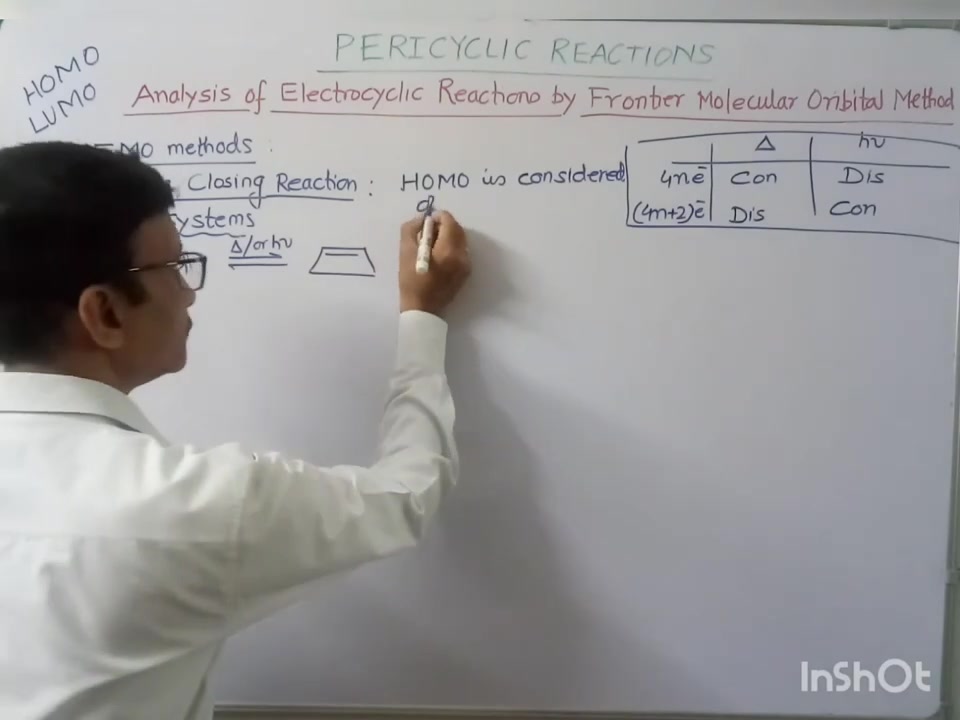 PERICYCLIC REACTIONS
HOMO
LUMO
Analysis of Electrocyclic Reactions by Frontier Molecular Oribital Method
FMO methods :
Closing Reaction : HOMO is considered
ystems
Δ/or hν
Δ hν
4nē Con Dis
(4n+2)ē Dis Con
InShOt